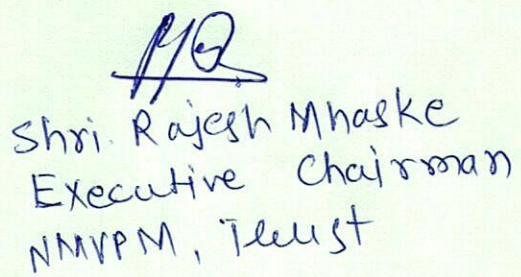 Shri. Rajesh Mhaske
Executive Chairman
NMVPM, Trust